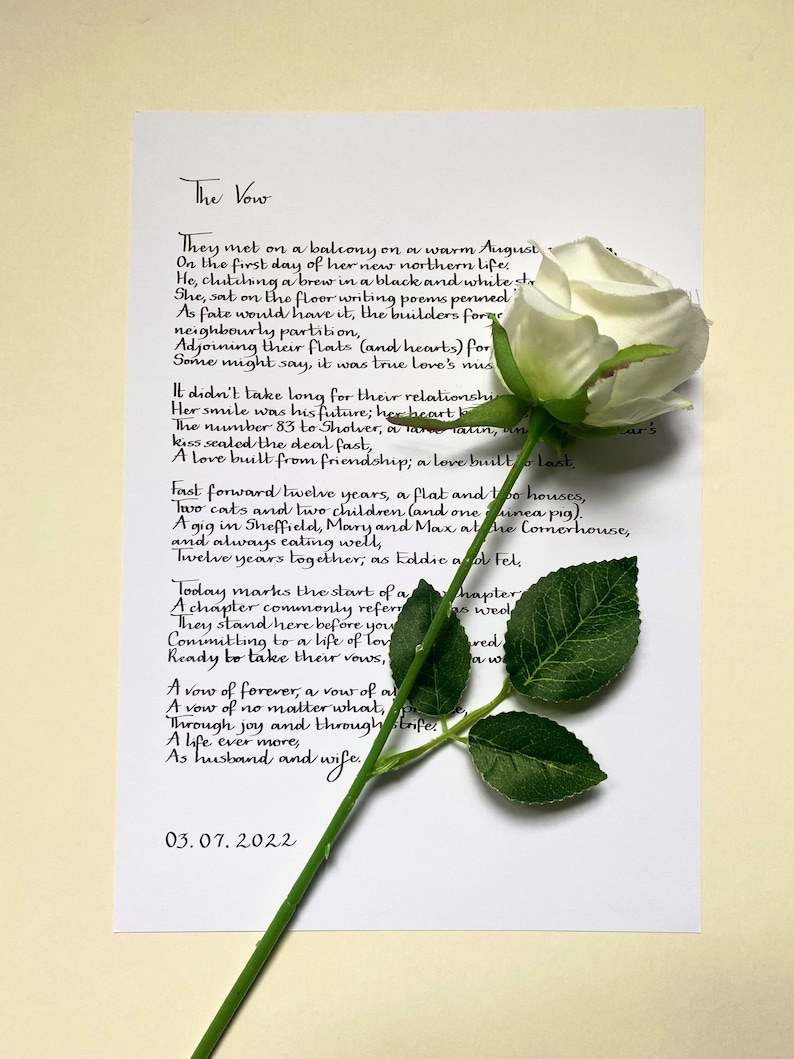 The Vow
They met on a balcony on a warm August
On the first day of her new northern life.
He, clutching a brew in a black and white
She, sat on the floor writing poems penned
As fate would have it, the builders
neighbourly partition,
Adjoining their flats (and hearts) for
Some might say, it was true love's
It didn't take long for their
Her smile was his future; her heart
The number 83 to Sholver, a
kiss sealed the deal fast,
A love built from friendship; a love built to last.
Fast forward twelve years, a flat and two houses,
Two cats and two children (and one guinea pig).
A gig in Sheffield, Mary and Max at the Cornerhouse,
and always eating well,
Twelve years together, as Eddie and Fel.
Today marks the start of a chapter
A chapter commonly as
They stand here before you
Committing to a life of
Ready to take their vows, a
A vow of forever, a vow of
A vow of no matter what,
Through joy and through strife.
A life ever more,
As husband and wife.
03.07.2022